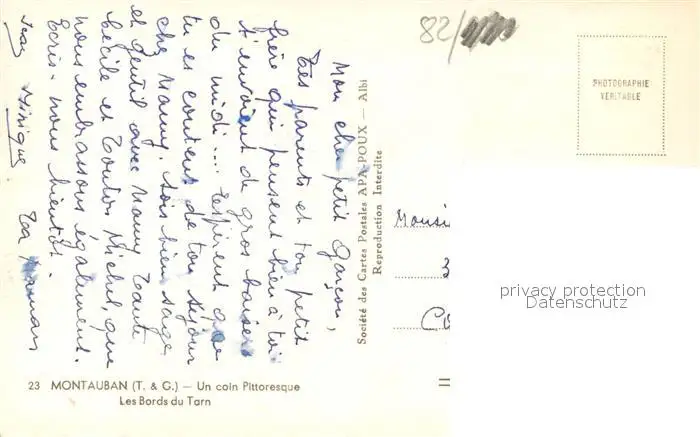 82/
PHOTOGRAPHIE
VERITABLE
Mon cher petit Garçon,
Tes parents et ton petit
frère qui pensent bien à toi
t'envoient de gros baisers
du midi... espèrent que
tu es content de ton séjour
chez Nanny. Sois bien sage
et gentil avec Nanny Tante
Cécile et Tonton Michel, que
nous embrassons également.
Ecris-nous bientôt.
Ta maman
Jean
Société des Cartes Postales APA-POUX — Albi
Reproduction Interdite
Monsi
3
privacy protection
Datenschutz
23 MONTAUBAN (T. & G.) — Un coin Pittoresque
Les Bords du Tarn